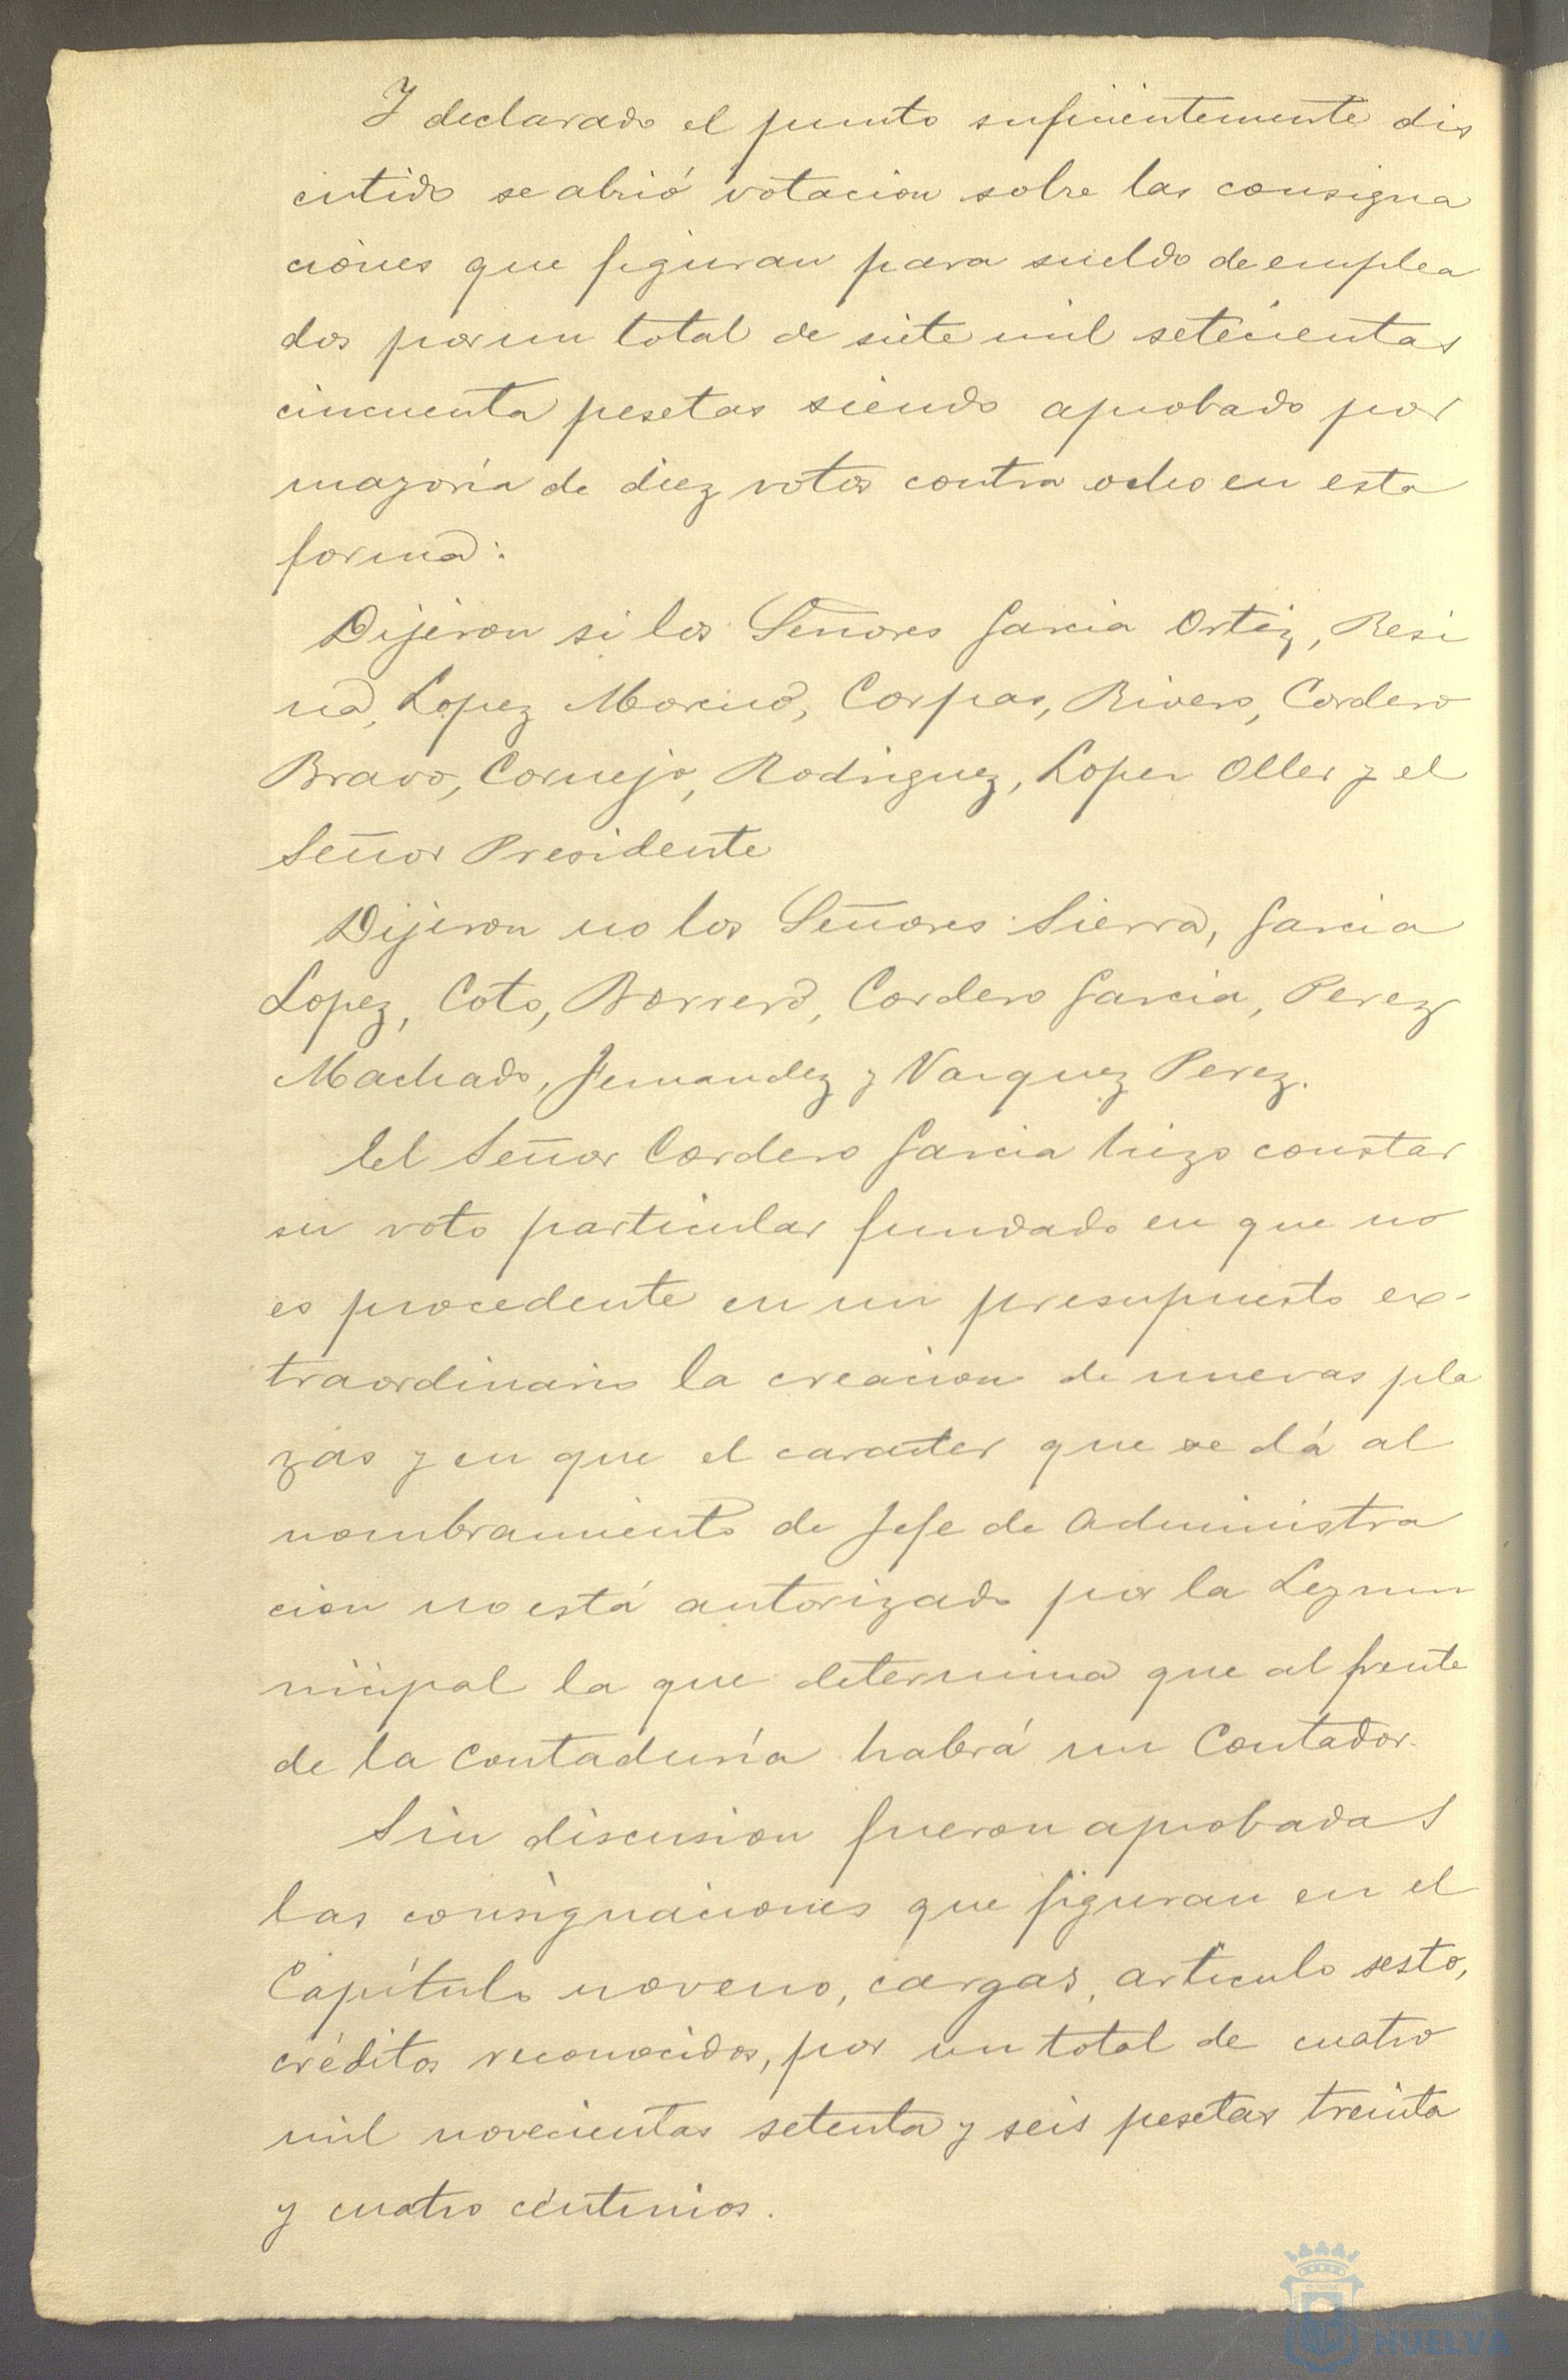 Y declarado el punto suficientemente dis
cutido se abrió votacion sobre las consigna
ciones que figuran para sueldo de emplea
dos por un total de siete mil setecientas
cincuenta pesetas siendo aprobado por
mayoría de diez votos contra ocho en esta
forma:
Dijeron si los Señores Garcia Ortiz, Resi
na, Lopez Moreno, Corpas, Rivero, Cordero
Bravo, Cornejo, Rodriguez, Lopez Oller y el
Señor Presidente
Dijeron no los Señores Sierra, Garcia
Lopez, Coto, Borrero, Cordero Garcia, Perez
Machado, Fernandez y Vazquez Perez.
El Señor Cordero Garcia hizo constar
su voto particular fundado en que no
es procedente en un presupuesto ex-
traordinario la creacion de nuevas pla
zas y en que el caracter que se dá al
nombramiento de Jefe de Administra
cion no está autorizado por la Ley mu
nicipal la que determina que al frente
de la Contaduría habrá un Contador.
Sin discusion fueron aprobadas
las consignaciones que figuran en el
Capítulo noveno, cargas, articulo sesto,
créditos reconocidos, por un total de cuatro
mil novecientas setenta y seis pesetas treinta
y cuatro céntimos.
HUELVA